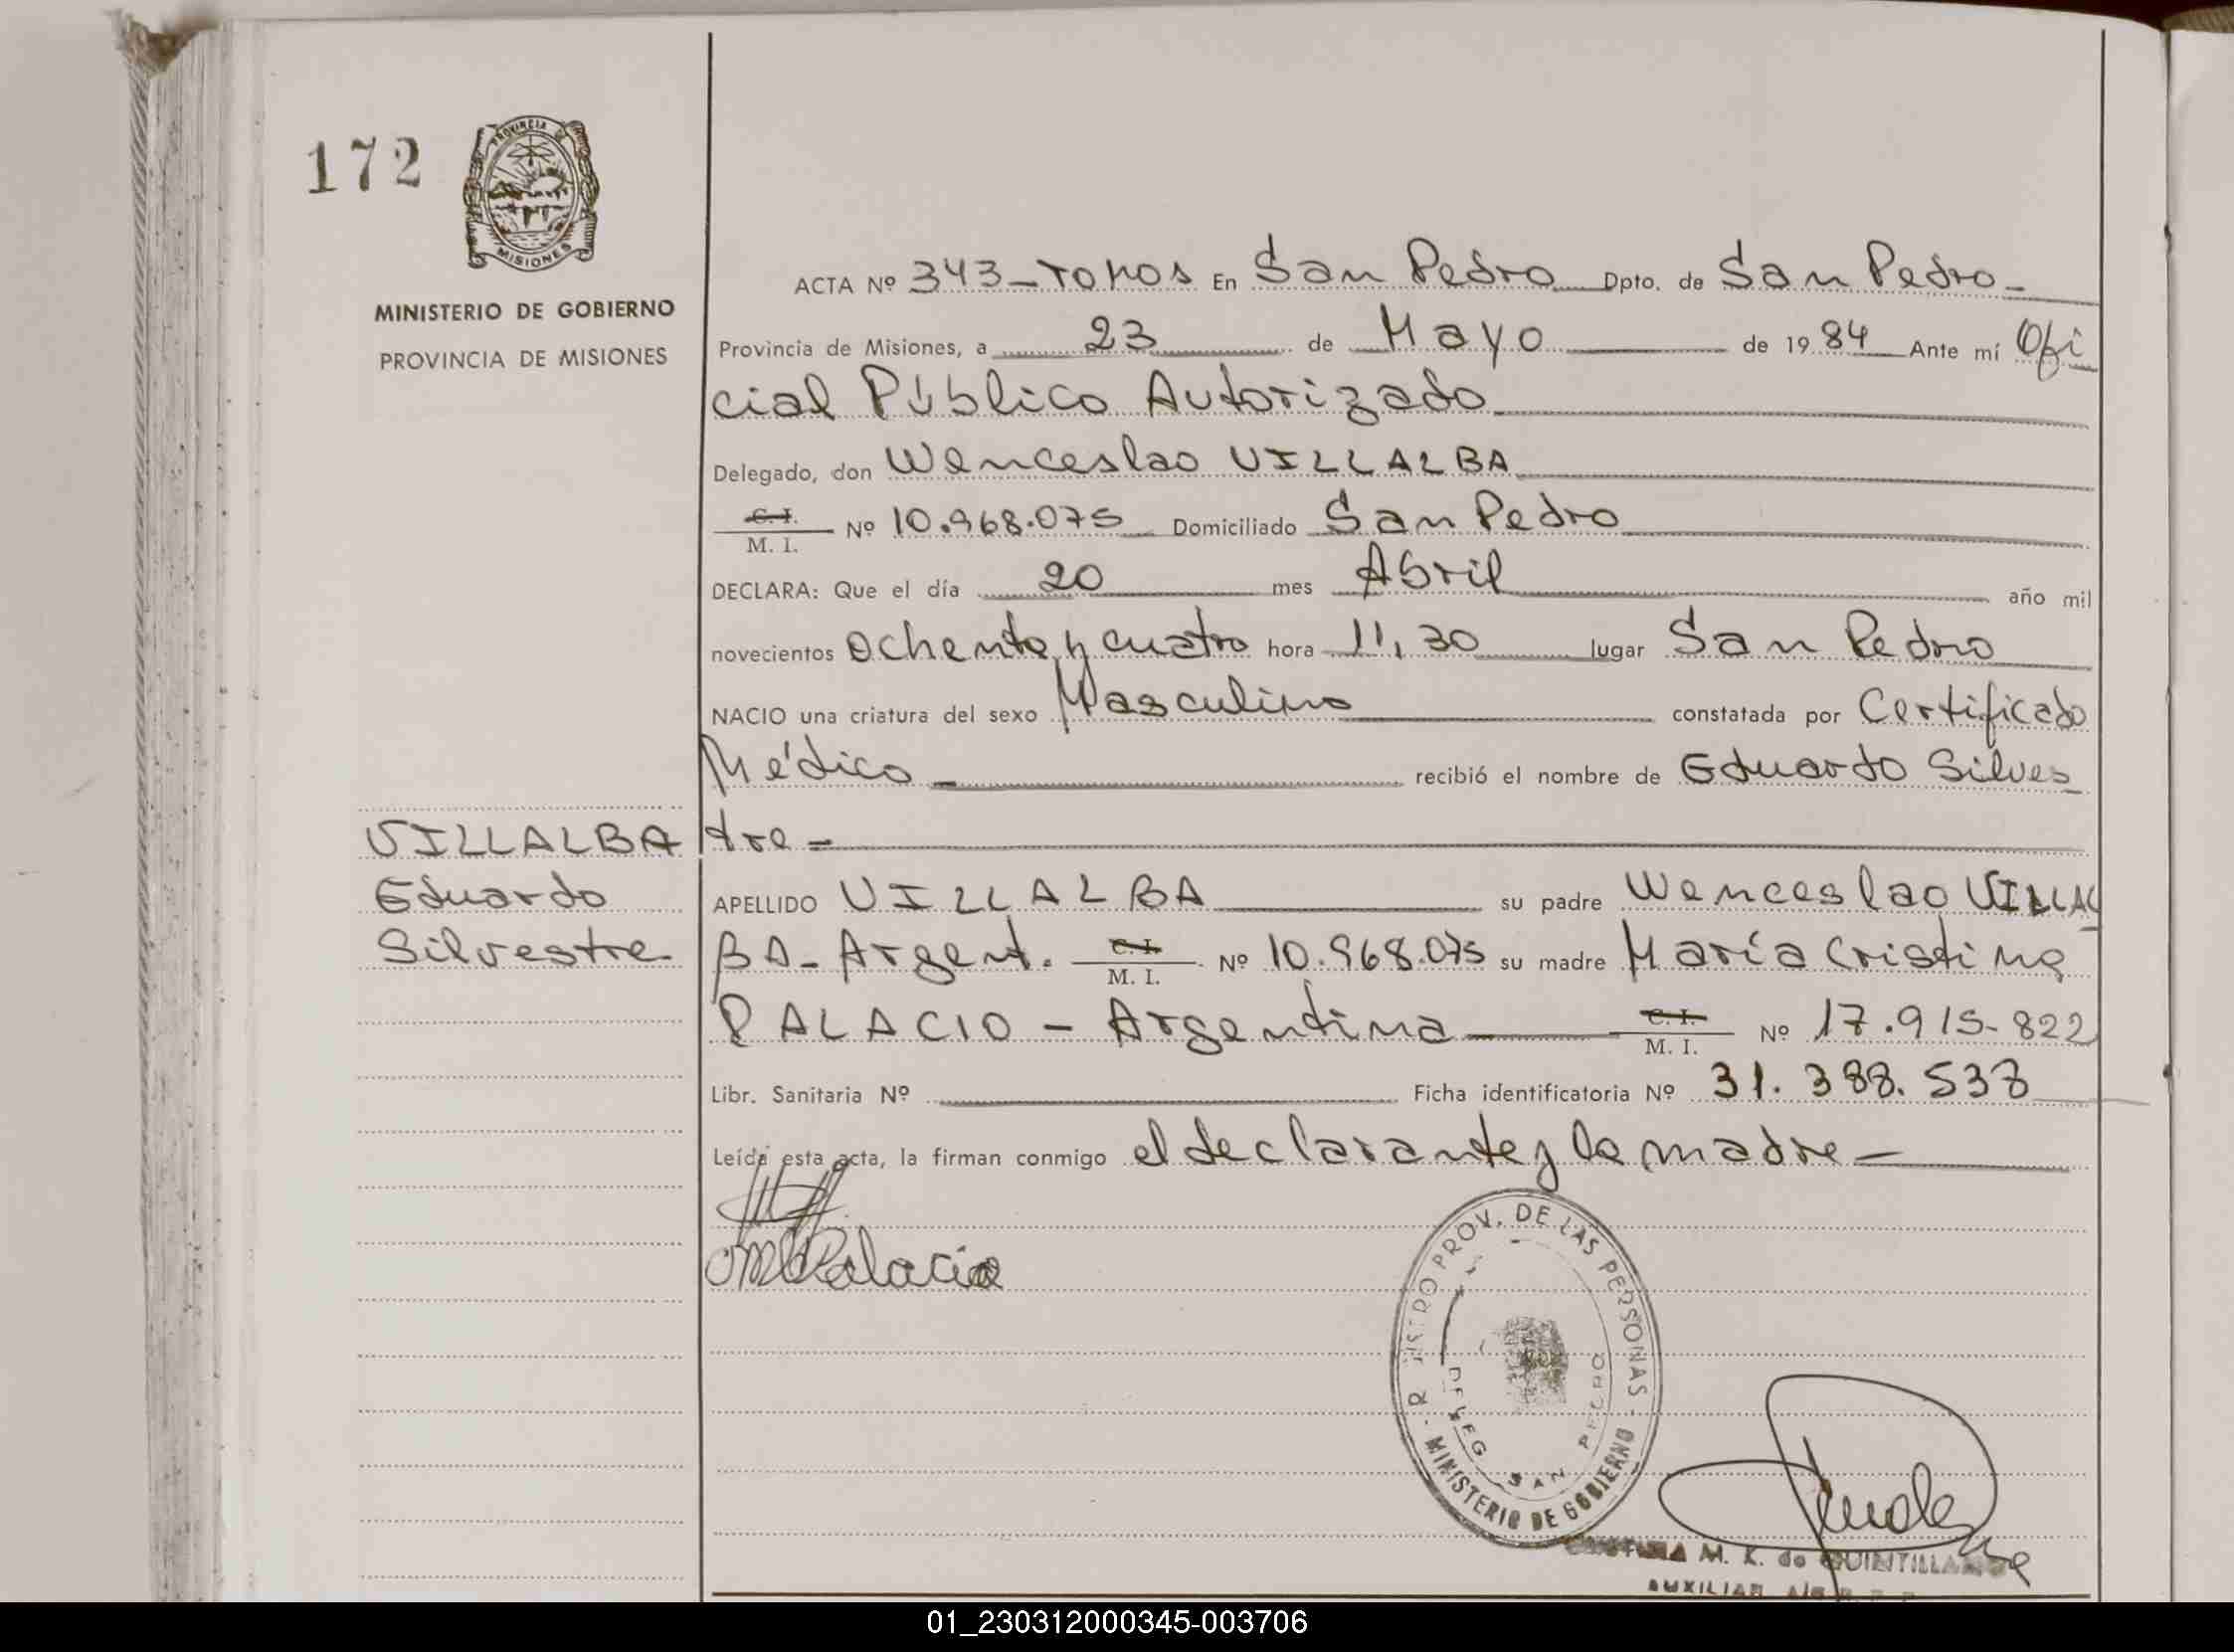 172
PROVINCIA DE
MISIONES
MINISTERIO DE GOBIERNO
PROVINCIA DE MISIONES
ACTA Nº 343-TOMO En San Pedro Dpto. de San Pedro-
Provincia de Misiones, a 23 de Mayo de 1984 Ante mí Ofi
cial Público Autorizado
Delegado, don Wenceslao VILLALBA
C. I.
M. I. Nº 10.968.075 Domiciliado San Pedro
DECLARA: Que el día 20 mes Abril año mil
novecientos ochenta y cuatro hora 11,30 lugar San Pedro
NACIO una criatura del sexo Masculino constatada por Certificado
Médico - recibió el nombre de Eduardo Silves
tre =
VILLALBA
Eduardo
Silvestre
APELLIDO VILLALBA su padre Wenceslao VILLAL
BA- Argent. C. I.
M. I. Nº 10.968.075 su madre María Cristina
PALACIO - Argentina C. I.
M. I. Nº 17.915.822
Libr. Sanitaria Nº Ficha identificatoria Nº 31.388.538
Leída esta acta, la firman conmigo el declarante y la madre -
Palacio
PROV. DE LAS PERSONAS
DELEG. SAN PEDRO
MINISTERIO DE GOBIERNO
M. K. de QUINTILLANA
AUXILIAR
01_230312000345-003706